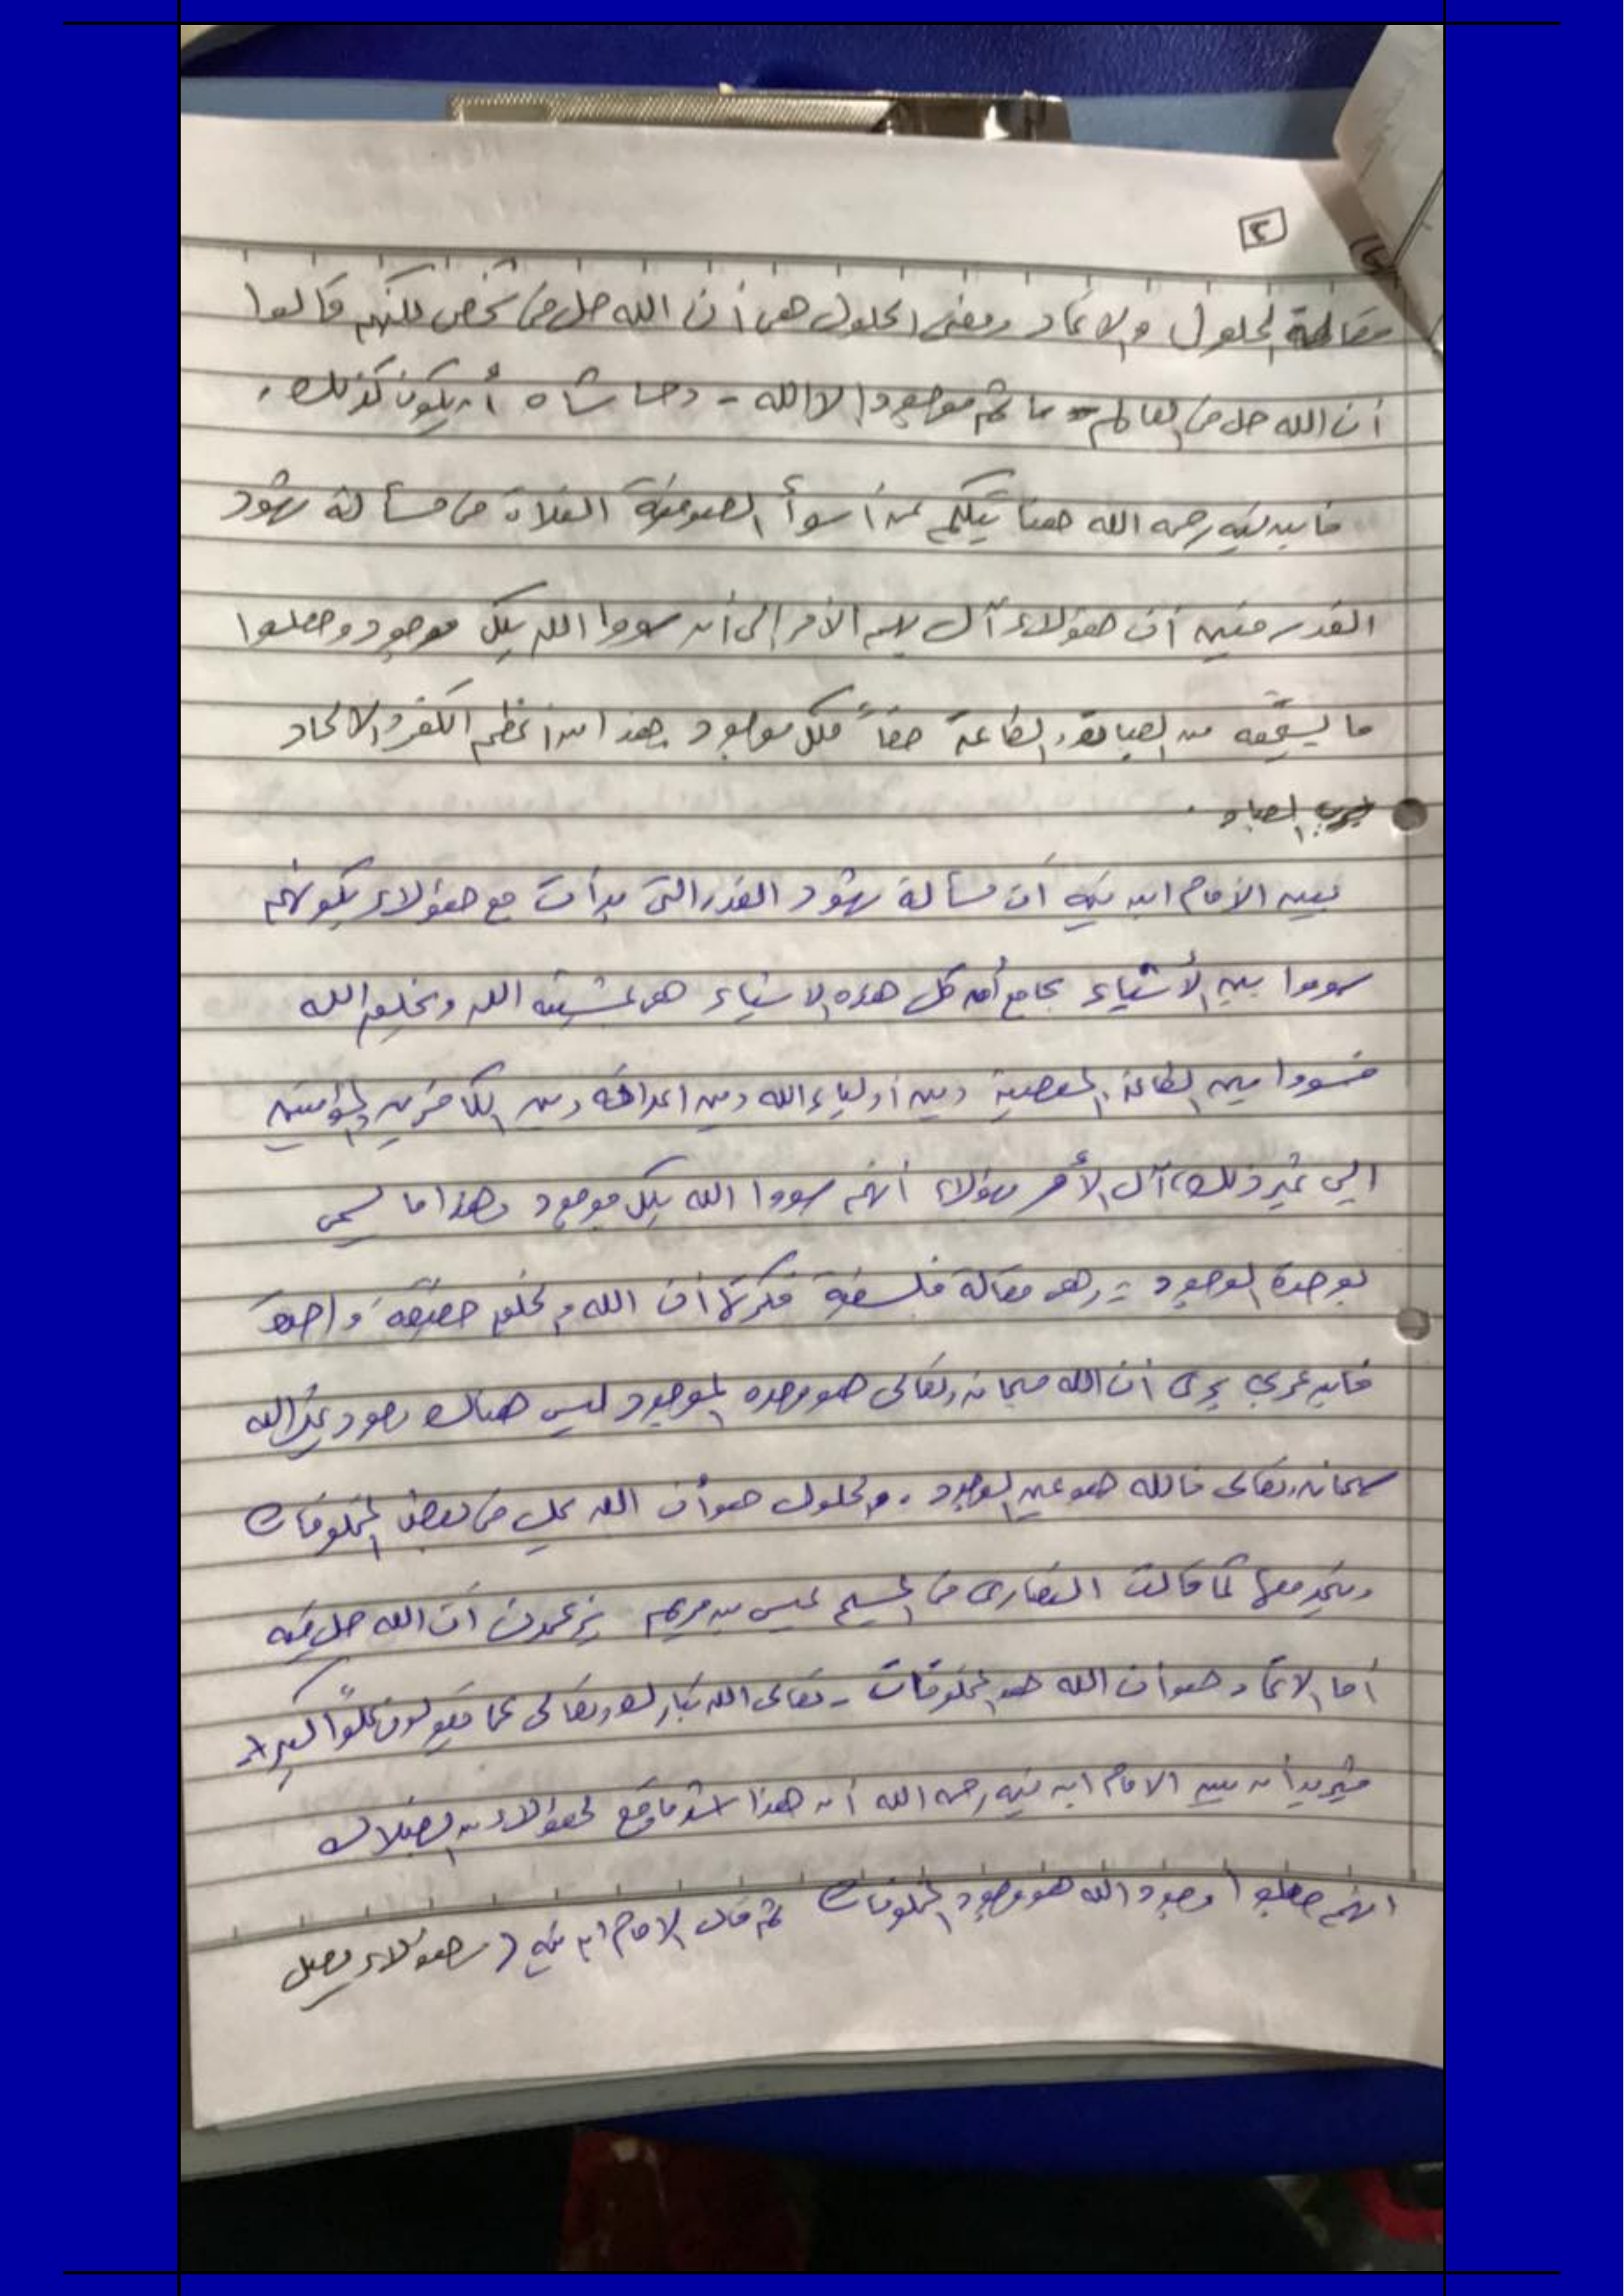 ٢
مقالة الحلول والاتحاد ومعنى الحلول هي أن الله حل في شخص لكنهم قالوا
أن الله حل في العالم ما ثم موجودا الا الله - وحاشاه أن يكون كذلك.
فابن تيميه رحمه الله هنا يتكلم عن أسوأ الصوفية الغلاة في مسألة شهود
القدر فبين أن هؤلاء آل بهم الأمر إلى أن سووا الله بكل موجود وجعلوا
ما يستحقه من العبادة والطاعة حقاً لكل موجود وهذا من أعظم الكفر والالحاد
برب العباد.
يبين الأمام ابن تيميه أن مسألة شهود القدر التي بدأت مع هؤلاء بكونهم
سووا بين الأشياء بجامع أن كل هذه الاشياء هي بمشيئة الله وبخلق الله
فسووا بين الطاعة والمعصية وبين أولياء الله وبين اعدائه وبين الكافرين والمؤمنين
الي غير ذلك، آل الأمر بهؤلاء أنهم سووا الله بكل موجود وهذا ما يسمى
بوحدة الوجود :- وهي مقالة فلسفية فكرتها أن الله والخلق حقيقة واحدة
فابن عربي يرى أن الله سبحانه وتعالى هو وحده الموجود ليس هناك وجود غير الله
سبحانه وتعالى فالله هو عين الوجود. والحلول هو أن الله يحل في بعض المخلوقات
ويتحد معها كما قالت النصارى في المسيح عيسى بن مريم يزعمون أن الله حل فيه
أما الاتحاد هو أن الله هو المخلوقات - تعالى الله تبارك وتعالى عما يقولون علواً كبيرا -
فيريد أن يبين الامام ابن تيميه رحمه الله أن هذا أشد ما وقع لهؤلاء من الضلال
انهم جعلوا وجود الله هو وجود المخلوقات ثم قال الامام ابن تيميه ( وهؤلاء يصل